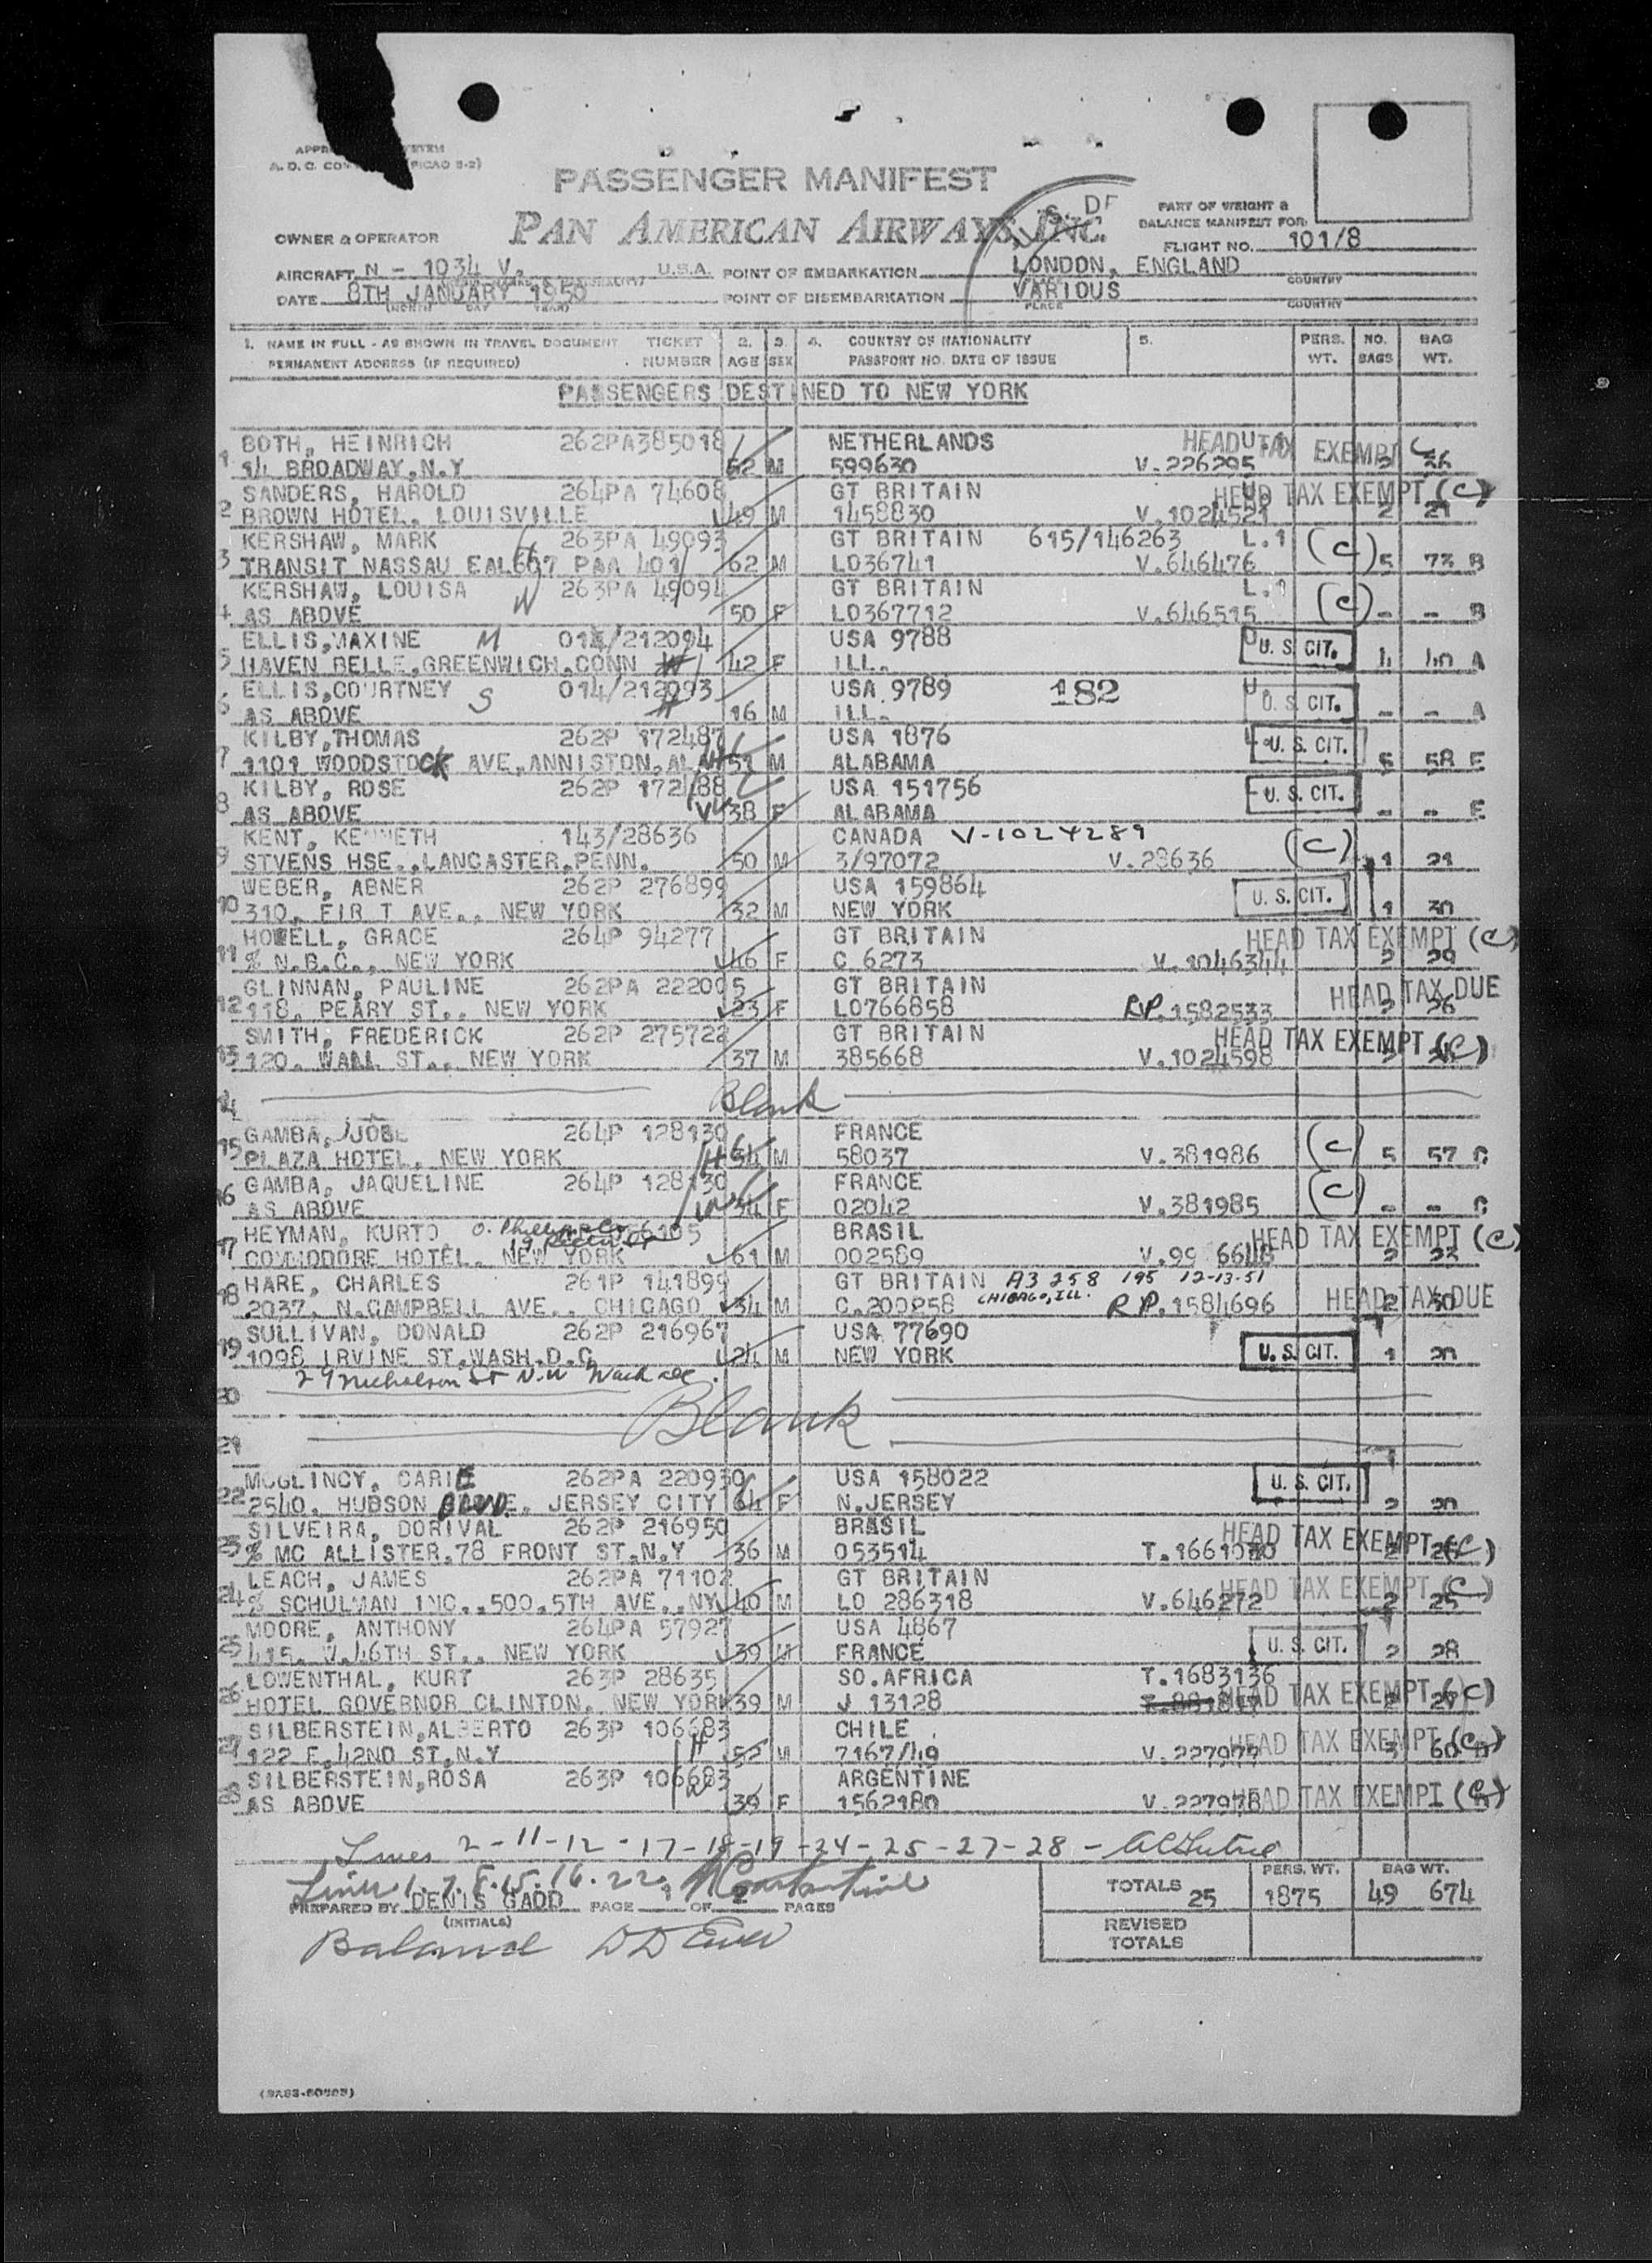 PASSENGER MANIFEST
PAN AMERICAN AIRWAYS, INC.
PART OF WEIGHT &
BALANCE MANIFEST FOR
OWNER & OPERATOR
FLIGHT NO. 101/8
AIRCRAFT N - 1034 V. U.S.A. POINT OF EMBARKATION LONDON, ENGLAND COUNTRY
DATE 8TH JANUARY 1950 POINT OF DISEMBARKATION VARIOUS COUNTRY
PLACE
1. NAME IN FULL - AS SHOWN IN TRAVEL DOCUMENT TICKET 2. 3. 4. COUNTRY OF NATIONALITY 5. PERS. NO. BAG
PERMANENT ADDRESS (IF REQUIRED) NUMBER AGE SEX PASSPORT NO. DATE OF ISSUE WT. BAGS WT.
PASSENGERS DESTINED TO NEW YORK
BOTH, HEINRICH 262PA385018 NETHERLANDS HEAD TAX EXEMPT
1 14 BROADWAY, N.Y 52 M 599630 V.226295
SANDERS, HAROLD 264PA 74608 GT BRITAIN HEAD TAX EXEMPT (C)
2 BROWN HOTEL, LOUISVILLE 49 M 1458830 V.1024521 2 21
KERSHAW, MARK 263PA 49093 GT BRITAIN 615/146263 L.1 (C)
3 TRANSIT NASSAU EAL607 PAA 401 62 M LO36741 V.646476 5 73 B
KERSHAW, LOUISA W 263PA 49094 GT BRITAIN L.1 (C)
4 AS ABOVE 50 F LO367712 V.646515 - -- B
ELLIS,MAXINE M 014/212094 USA 9788 U. S. CIT.
5 HAVEN BELLE,GREENWICH,CONN 42 F ILL. 4 40 A
ELLIS,COURTNEY S 014/212093 USA 9789 182 U. S. CIT.
6 AS ABOVE 16 M ILL. -- -- A
KILBY,THOMAS 262P 172487 USA 1876 U. S. CIT.
7 1101 WOODSTOCK AVE,ANNISTON,AL 51 M ALABAMA 5 58 E
KILBY, ROSE 262P 172488 USA 151756 U. S. CIT.
8 AS ABOVE W 38 F ALABAMA -- -- E
KENT, KENNETH 143/28636 CANADA V-1024289 (C)
9 STVENS HSE.,LANCASTER,PENN. 50 M 3/97072 V.28636 1 21
WEBER, ABNER 262P 276899 USA 159864 U. S. CIT.
10 310, FIR T AVE., NEW YORK 32 M NEW YORK 1 30
HOWELL, GRACE 264P 94277 GT BRITAIN HEAD TAX EXEMPT (C)
11 % N.B.C., NEW YORK 46 F C 6273 V.1046344 2 29
GLINNAN, PAULINE 262PA 222005 GT BRITAIN HEAD TAX DUE
12 118, PEARY ST., NEW YORK 23 F LO766858 RP.1582533 2 26
SMITH, FREDERICK 262P 275722 GT BRITAIN HEAD TAX EXEMPT (C)
13 120, WALL ST., NEW YORK 37 M 385668 V.1024598
Blank
GAMBA, JOSE 264P 128130 FRANCE (C)
15 PLAZA HOTEL, NEW YORK H 54 M 58037 V.381986 5 57 C
GAMBA, JAQUELINE 264P 128130 FRANCE (C)
16 AS ABOVE W 34 F 02042 V.381985 - -- C
HEYMAN, KURTO BRASIL HEAD TAX EXEMPT (C)
17 COMMODORE HOTEL, NEW YORK 61 M 002589 2 23
HARE, CHARLES 261P 141899 GT BRITAIN A3 258 195 12-13-51
CHICAGO, ILL. HEAD TAX DUE
18 2037, N.CAMPBELL AVE., CHICAGO 34 M C.200258 RP.1584696 2 30
SULLIVAN, DONALD 262P 216967 USA 77690
19 1098 IRVINE ST,WASH.D.C 24 M NEW YORK U. S. CIT. 1 20
29 Nicholson St N.W Wash DC.
20
Blank
21
MCGLINCY, CARIE 262PA 220930 USA 158022 U. S. CIT.
22 2540, HUDSON BLVD. JERSEY CITY 64 F N.JERSEY 2 20
SILVEIRA, DORIVAL 262P 216950 BRASIL HEAD TAX EXEMPT (C)
23 % MC ALLISTER,78 FRONT ST,N.Y 36 M 053514
LEACH, JAMES 262PA 71102 GT BRITAIN HEAD TAX EXEMPT (C)
24 % SCHULMAN INC.,500,5TH AVE.,NY 40 M LO 286318 V.646272 2 25
MOORE, ANTHONY 264PA 57927 USA 4867
25 415, W.46TH ST., NEW YORK 39 M FRANCE U. S. CIT. 2 28
LOWENTHAL, KURT 263P 28635 SO.AFRICA T.1683136
26 HOTEL GOVERNOR CLINTON, NEW YORK 39 M J 13128 HEAD TAX EXEMPT (C)
SILBERSTEIN,ALBERTO 263P 106683 CHILE
27 122 E,42ND ST,N.Y H 52 M 7167/49 V.227977 HEAD TAX EXEMPT (C)
SILBERSTEIN,ROSA 263P 106683 ARGENTINE
28 AS ABOVE W 39 F 1562180 V.227978 HEAD TAX EXEMPT (C)
Lines 2-11-12-17-18-19-24-25-27-28-
Lines 1.7.8.15.16.22
PERS. WT. BAG WT.
TOTALS 25 1875 49 674
PREPARED BY DENIS GADD PAGE 1 OF 2 PAGES
(INITIALS)
REVISED
TOTALS
Balance